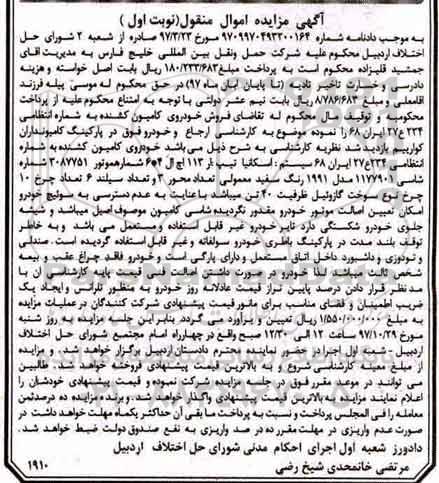 آگهی مزایده اموال منقول (نوبت اول)
به موجب دادنامه شماره ۹۷۰۹۹۷۰۴۹۳۳۰۰۱۶۴ مورخ ۹۷/۳/۲۳ صادره از شعبه ۲ شورای حل
اختلاف اردبیل محکوم علیه شرکت حمل ونقل بین المللی خلیج فارس به مدیریت اقای
جمشید قلیزاده محکوم است به پرداخت مبلغ ۱۸۰/۲۳۳/۶۸۳ ریال بابت اصل خواسته و هزینه
دادرسی و خسارت تاخیر تادیه (تا پایان ابان ماه ۹۷) در حق محکوم له موسی پیله فرزند
اقامعلی و مبلغ ۸/۷۸۶/۶۸۳ ریال بابت نیم عشر دولتی با توجه به امتناع محکوم علیه از پرداخت
محکوم‌به و توقیف مال محکوم له تقاضای فروش خودروی کامیون کشنده به شماره انتظامی
۲۳۴ ع ۲۷ ایران ۶۸ را نموده موضوع به کارشناسی ارجاع و خودرو فوق در پارکینگ کامیونداران
کوارییم بازدید شد نظریه کارشناسی به شرح ذیل می باشد خودروی کامیون کشنده به شماره
انتظامی ۲۳۴ ع ۲۷ ایران ۶۸ سیستم: اسکانیا تیپ: ار ۱۱۳ اچ ال ۴*۶ شماره‌موتور ۳۰۸۷۷۵۱ شماره
شاسی ۱۱۷۷۹۰۱ مدل ۱۹۹۱ رنگ سفید معمولی تعداد محور ۳ و تعداد سیلند ۶ تعداد چرخ ۱۰
چرخ نوع سوخت گازوئیل ظرفیت ۴۰ تن میباشد با عنایت به عدم دسترسی به سوئیچ خودرو
امکان تعیین اصالت موتور خودرو مقدور نگردیده شاسی کامیون موصوف اصیل میباشد و شیشه
جلوی خودرو شکستگی دارد تایر خودرو غیر قابل استفاده و مستعمل می باشد و به خاطر
توقف بلند مدت در پارکینگ باطری خودرو سولفاته و غیر قابل استفاده گردیده است. صندلی
و تودوزی و داشبورد داخل اتاق مستعمل و دارای پارگی است و خودرو فاقد چراغ عقب و بیمه
شخص ثالث میباشد لذا خودرو در صورت داشتن اصالت فنی قیمت پایه کارشناسی آن با
مد نظر قرار دادن درصد پایین تراز قیمت عادلانه روز خودرو به منظور تلرانس و ایجاد یک
ضریب اطمینان و فضای مناسب برای مانور قیمت پیشنهادی شرکت کنندگان در عملیات مزایده
به مبلغ ۱/۵۵۰/۰۰۰/۰۰۰ ریال تعیین و براورد می گردد بنابراین جلسه مزایده به روز شنبه
مورخ ۹۷/۱۰/۲۹ ساعت ۱۲ الی ۱۲/۳۰ صبح واقع در چهارراه امام مجتمع شورای حل اختلاف
اردبیل - شعبه اول اجرا در حضور نماینده محترم دادستان اردبیل برگزار خواهد شد . و مزایده
از مبلغ معینه کارشناسی شروع و به بالاترین قیمت پیشنهادی فروخته خواهد شد. طالبین
می توانند در موعد مقرر فوق در جلسه مزایده شرکت نموده و قیمت پیشنهادی خودشان را
اعلام نمایند مزایده به بالاترین قیمت پیشنهادی واگذار خواهد شد. و برنده مزایده ده درصد ثمن
معامله را فی المجلس پرداخت و نسبت به پرداخت مابقی آن حداکثر یکماه مهلت خواهد داشت در
صورت عدم واریزی در مهلت مقرر ده در صد واریزی به نفع صندوق دولت ضبط خواهد شد.
دادورز شعبه اول اجرای احکام مدنی شورای حل اختلاف اردبیل
مرتضی خانمحمدی شیخ رضی
۱۹۱۰